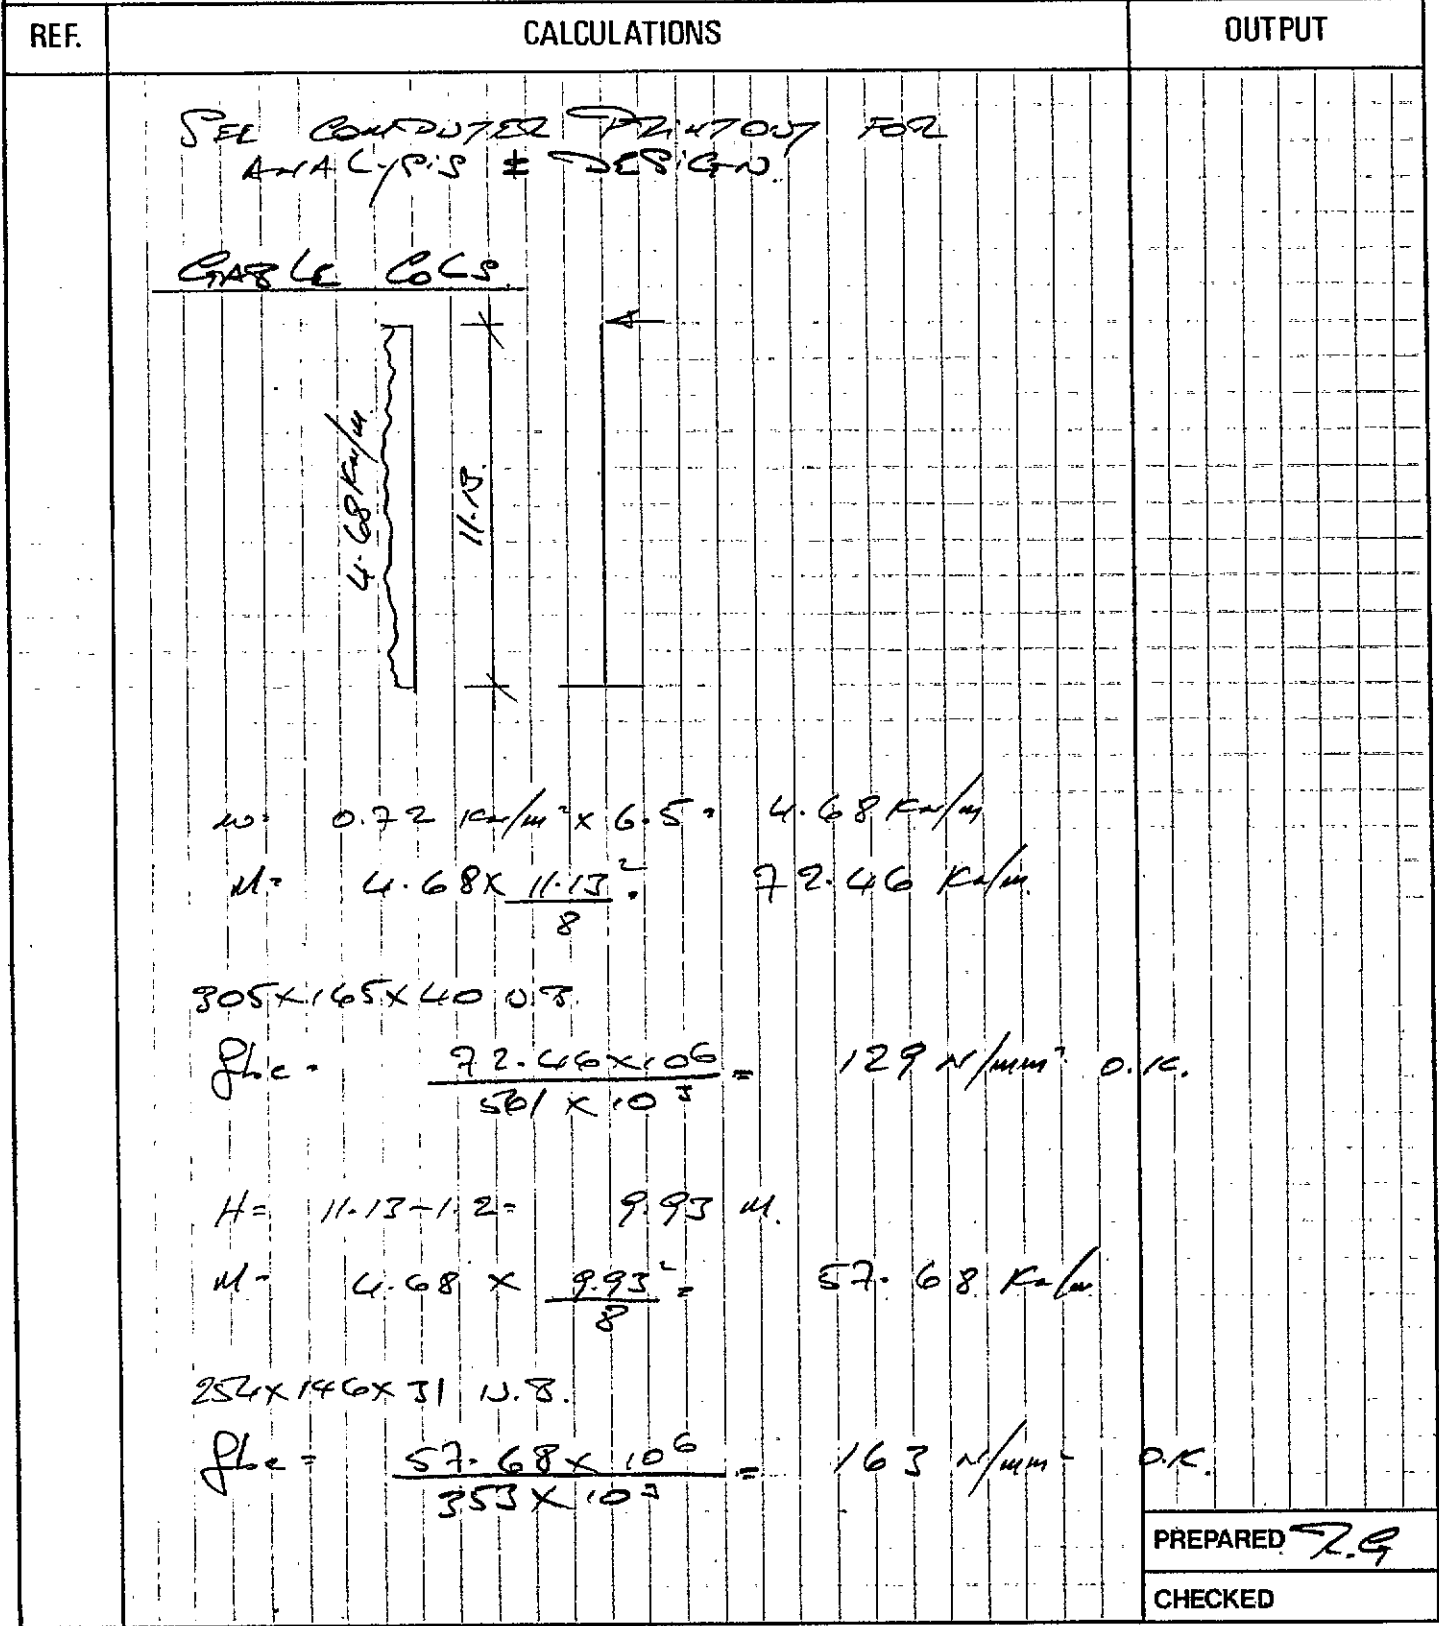 REF. CALCULATIONS OUTPUT
SEE COMPUTER PRINTOUT FOR
ANALYSIS & DESIGN.
GABLE COLS.
4.68 KN/M
11.13.
w= 0.72 KN/m² x 6.5 = 4.68 KN/M
M= 4.68 x 11.13² / 8 = 72.46 KN/M.
305x165x40 U.B.
fbc = 72.46 x 10⁶ / 561 x 10³ = 129 N/mm² O.K.
H= 11.13-1.2= 9.93 M.
M= 4.68 x 9.93² / 8 = 57.68 KN/M
254x146x31 U.B.
fbc = 57.68 x 10⁶ / 353 x 10³ = 163 N/mm² O.K.
PREPARED R.G
CHECKED